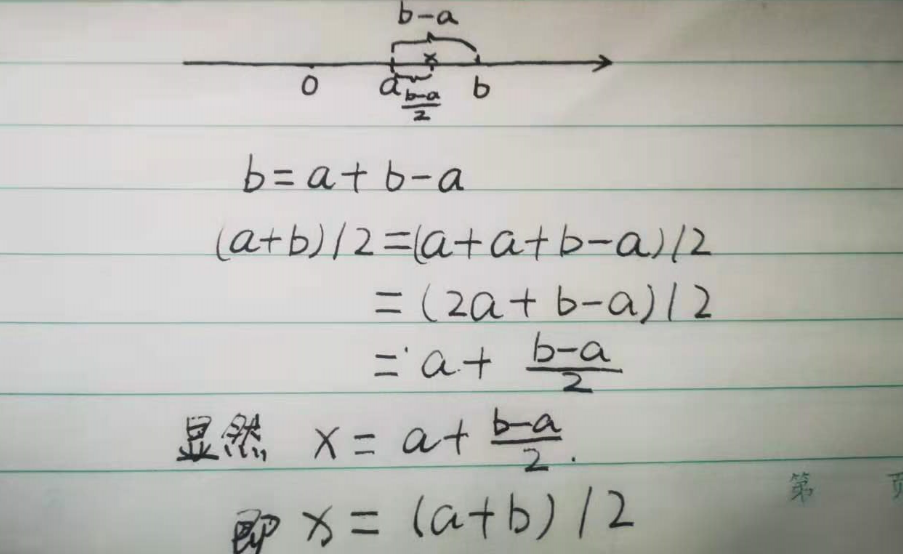 b-a
x
0 a b
b-a/2
b=a+b-a
(a+b)/2=(a+a+b-a)/2
=(2a+b-a)/2
=a+ b-a/2
显然 x=a+ b-a/2.
即 x=(a+b)/2
第 页